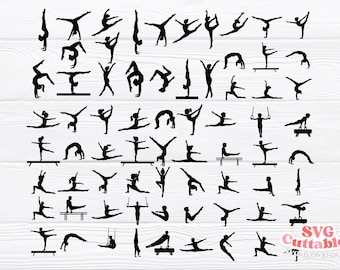 SVG
Cuttables